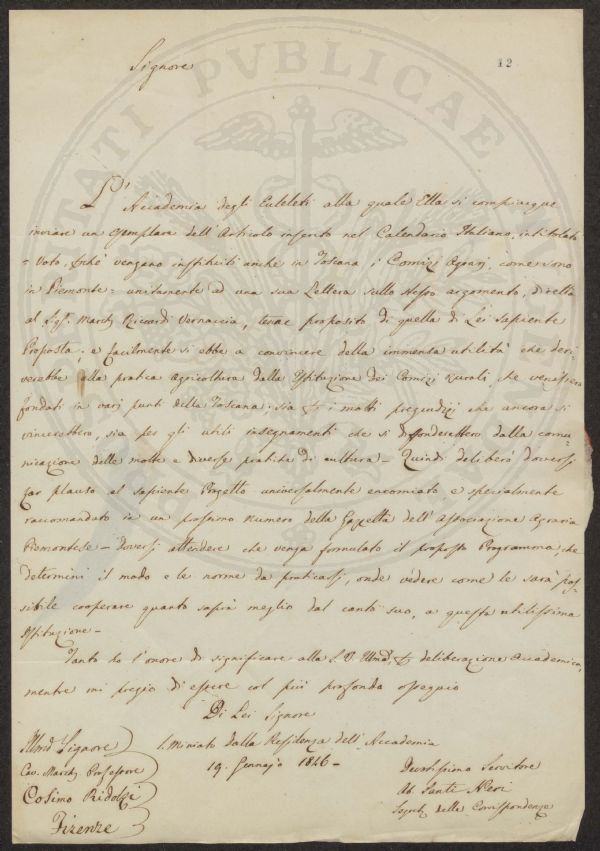 12
Signore
L'Accademia degli Euteleti alla quale Ella si compiacque
inviare un esemplare dell'Articolo inserito nel Calendario Italiano, intitolato
= Voto, perchè vengano instituiti anche in Toscana i Comizi Agrarj, come sono
in Piemonte = unitamente ad una sua Lettera sullo stesso argomento, diretta
al Sig. March. Ricardi Vernaccia, tenne proposito di quella di Lei sapiente
Proposta; e facilmente si ebbe a convincere della immensa utilità che deri-
verebbe alla pratica agricoltura dalla Istituzione dei Comizi rurali, che venissero
fondati in varj punti della Toscana; sia pr i molti pregiudizj che ancora si
vincerebbero, sia per gli utili insegnamenti che si diffonderebbero dalla comu-
nicazione delle molte e diverse pratiche di cultura - Quindi deliberò doversi
far plauso al sapiente Progetto universalmente encomiato, e specialmente
raccomandato in un prossimo numero della Gazzetta dell'Associazione Agraria
Piemontese - doversi attendere che venga formulato il proposto Programma, che
determini il modo e le norme da praticarsi, onde vedere come le sarà pos-
sibile cooperare quanto saprà meglio dal canto suo, a questa utilissima
Istituzione -
Tanto ho l'onore di significare alla S. V. Illma pr deliberazione Accademica,
mentre mi pregio di essere col più profondo ossequio
Di Lei Signore
S. Miniato dalla Residenza dell'Accademia
19. Gennajo 1846 -
Illmo Signore
Cav. March. Professore
Cosimo Ridolfi
Firenze
Devotissimo Servitore
Ab. Santi Neri
Segret. della Corrispondenza